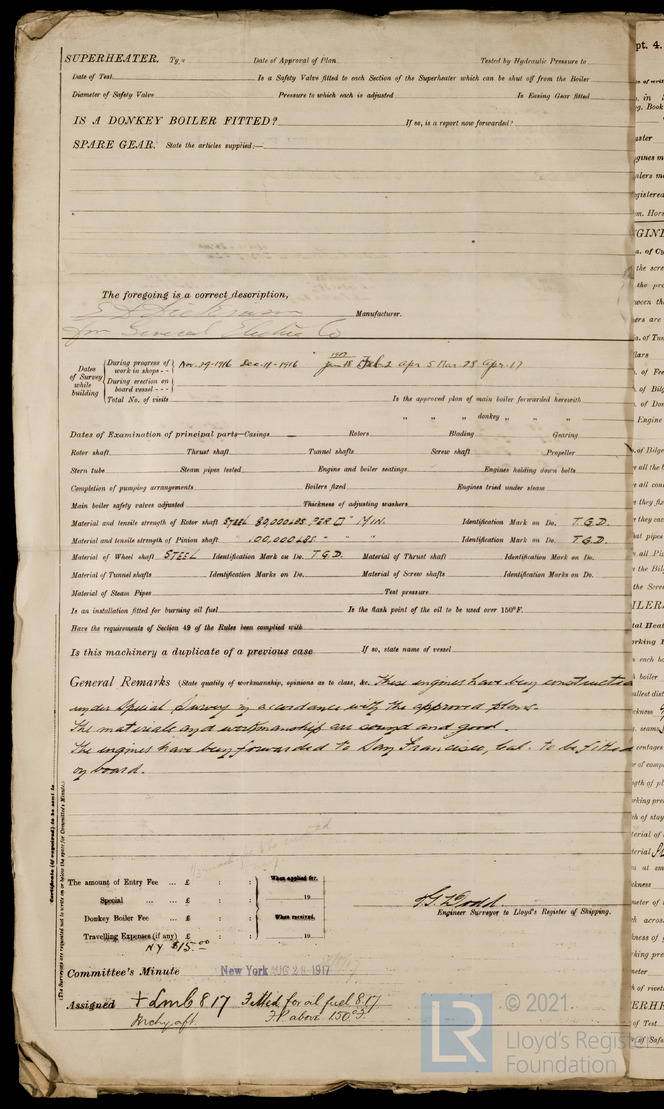 SUPERHEATER. Type Date of Approval of Plan Tested by Hydraulic Pressure to
Date of Test Is a Safety Valve fitted to each Section of the Superheater which can be shut off from the Boiler
Diameter of Safety Valve Pressure to which each is adjusted Is Easing Gear fitted
IS A DONKEY BOILER FITTED? If so, is a report now forwarded?
SPARE GEAR. State the articles supplied:—
The foregoing is a correct description,
Manufacturer.
for General Electric Co
Dates of Survey while building
During progress of work in shops - - Nov. 29-1916 Dec. 11-1916 1917 Jan 18 Feb 2 Apr 5 Mar 28 Apr. 17
During erection on board vessel - - -
Total No. of visits Is the approved plan of main boiler forwarded herewith
" " " donkey " " "
Dates of Examination of principal parts—Casings Rotors Blading Gearing
Rotor shaft Thrust shaft Tunnel shafts Screw shaft Propeller
Stern tube Steam pipes tested Engine and boiler seatings Engines holding down bolts
Completion of pumping arrangements Boilers fixed Engines tried under steam
Main boiler safety valves adjusted Thickness of adjusting washers
Material and tensile strength of Rotor shaft STEEL 80,000 LBS. PER □" MIN. Identification Mark on Do. T.G.D.
Material and tensile strength of Pinion shaft " 100,000 LBS. " " " Identification Mark on Do. T.G.D.
Material of Wheel shaft STEEL Identification Mark on Do. T.G.D. Material of Thrust shaft Identification Mark on Do.
Material of Tunnel shafts Identification Marks on Do. Material of Screw shafts Identification Marks on Do.
Material of Steam Pipes Test pressure
Is an installation fitted for burning oil fuel Is the flash point of the oil to be used over 150°F.
Have the requirements of Section 49 of the Rules been complied with
Is this machinery a duplicate of a previous case If so, state name of vessel
General Remarks (State quality of workmanship, opinions as to class, &c. These engines have been constructed
under Special Survey in accordance with the approved plans.
The materials and workmanship are sound and good.
The engines have been forwarded to San Francisco, Cal. to be fitted
on board.
Certificate (if required) to be sent to
(The Surveyors are requested not to write on or below the space for Committee's Minute.)
The amount of Entry Fee ... £ : : When applied for,
Special ... £ : : 19
Donkey Boiler Fee ... £ : : When received,
Travelling Expenses (if any) £ : : 19
N.Y. $15.00
T.G. Dodd.
Engineer Surveyor to Lloyd's Register of Shipping.
Committee's Minute New York AUG 28 1917
Assigned + LMC 8.17 Fitted for oil fuel 8.17
Mchy. aft. F.P. above 150°F.
LR © 2021
Lloyd's Register
Foundation